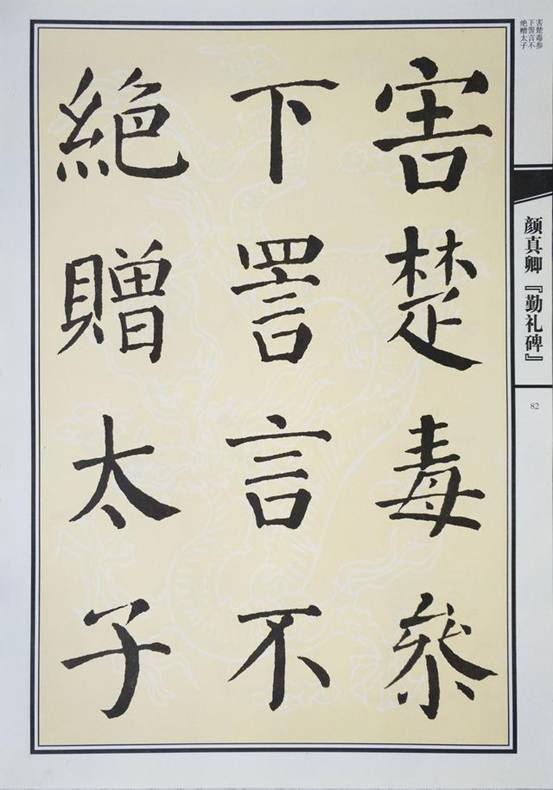 害楚毒參
下詈言不
絶贈太子
害楚毒参
下詈言不
绝赠太子
颜真卿『勤礼碑』
82